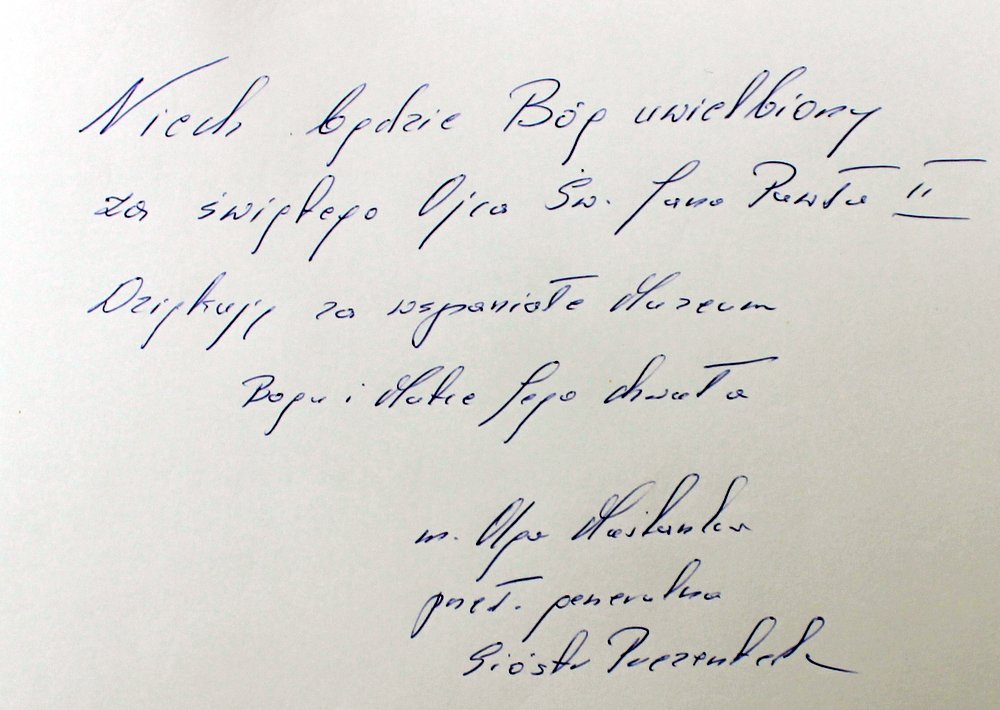 Niech będzie Bóg uwielbiony
za świętego Ojca Św. Jana Pawła II
Dziękuję za wspaniałe Muzeum
Bogu i Matce Jego chwała
m. Olga
przeł. generalna
Sióstr Prezentek